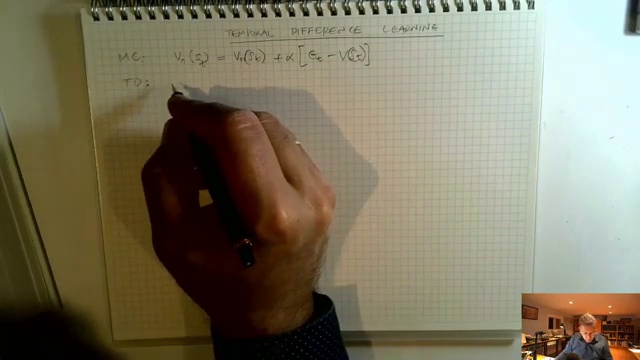 TEMPORAL DIFFERENCE LEARNING
MC: Vπ(St) = Vπ(St) + α [Gt − V(St)]
TD: V